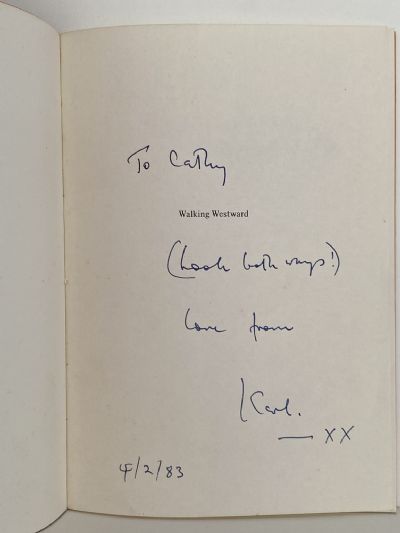 To Cathy
Walking Westward
(Look both ways!)
love from
Karl.
— XX
4/2/83